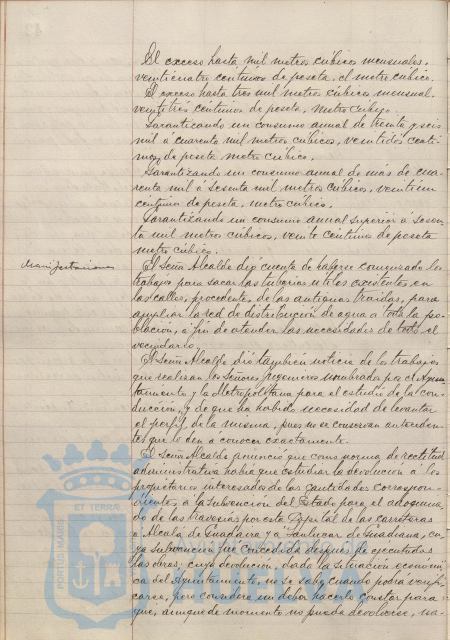 El exceso hasta mil metros cúbicos mensuales,
veinticuatro céntimos de peseta, el metro cúbico.
El exceso hasta tres mil metros cúbicos mensual.
veintitrés céntimos de peseta, metro cúbico.
Garantizando un consumo anual de treinta y seis
mil á cuarenta mil metros cúbicos, veintidos centi-
mos de peseta metro cúbico.
Garantizando un consumo anual de más de cua-
renta mil á sesenta mil metros cúbicos, veintiun
céntimos de peseta, metro cúbico.
Garantizando un consumo anual superior á sesen-
ta mil metros cúbicos, veinte céntimos de peseta
metro cúbico.
Manifestaciones
El Señor Alcalde dió cuenta de haberse comenzado los
trabajos para sacar las tuberias utiles existentes en
las calles, procedentes de las antiguas traidas, para
ampliar la red de distribución de agua a toda la po-
blación, á fin de atender las necesidades de todo el
vecindario.
El Señor Alcalde dió también noticia de los trabajos
que realizan los Señores Ingenieros nombrados por el Ayun-
tamiento y la Metropolitana para el estudio de la con-
ducción, y de que ha habido necesidad de levantar
el perfil de la misma, pues no se conservan anteceden-
tes que lo den a conocer exactamente.
El Señor Alcalde anunció que como norma de rectitud
administrativa habia que estudiar la devolución á los
propietarios interesados de las cantidades correspon-
dientes á la subvención del Estado para el adoquina-
do de las travesias por esta Capital de las carreteras
á Alcalá de Guadaira y á Sanlucar de Guadiana, cu-
ya subvención fue concedida después de ejecutadas
las obras, cuya devolución, dada la situación economi-
ca del Ayuntamiento, no se sabe cuando podrá verifi-
carse, pero considera un deber hacerlo constar para
que, aunque de momento no pueda devolverse, na-
PORTUS MARIS ET TERRAE